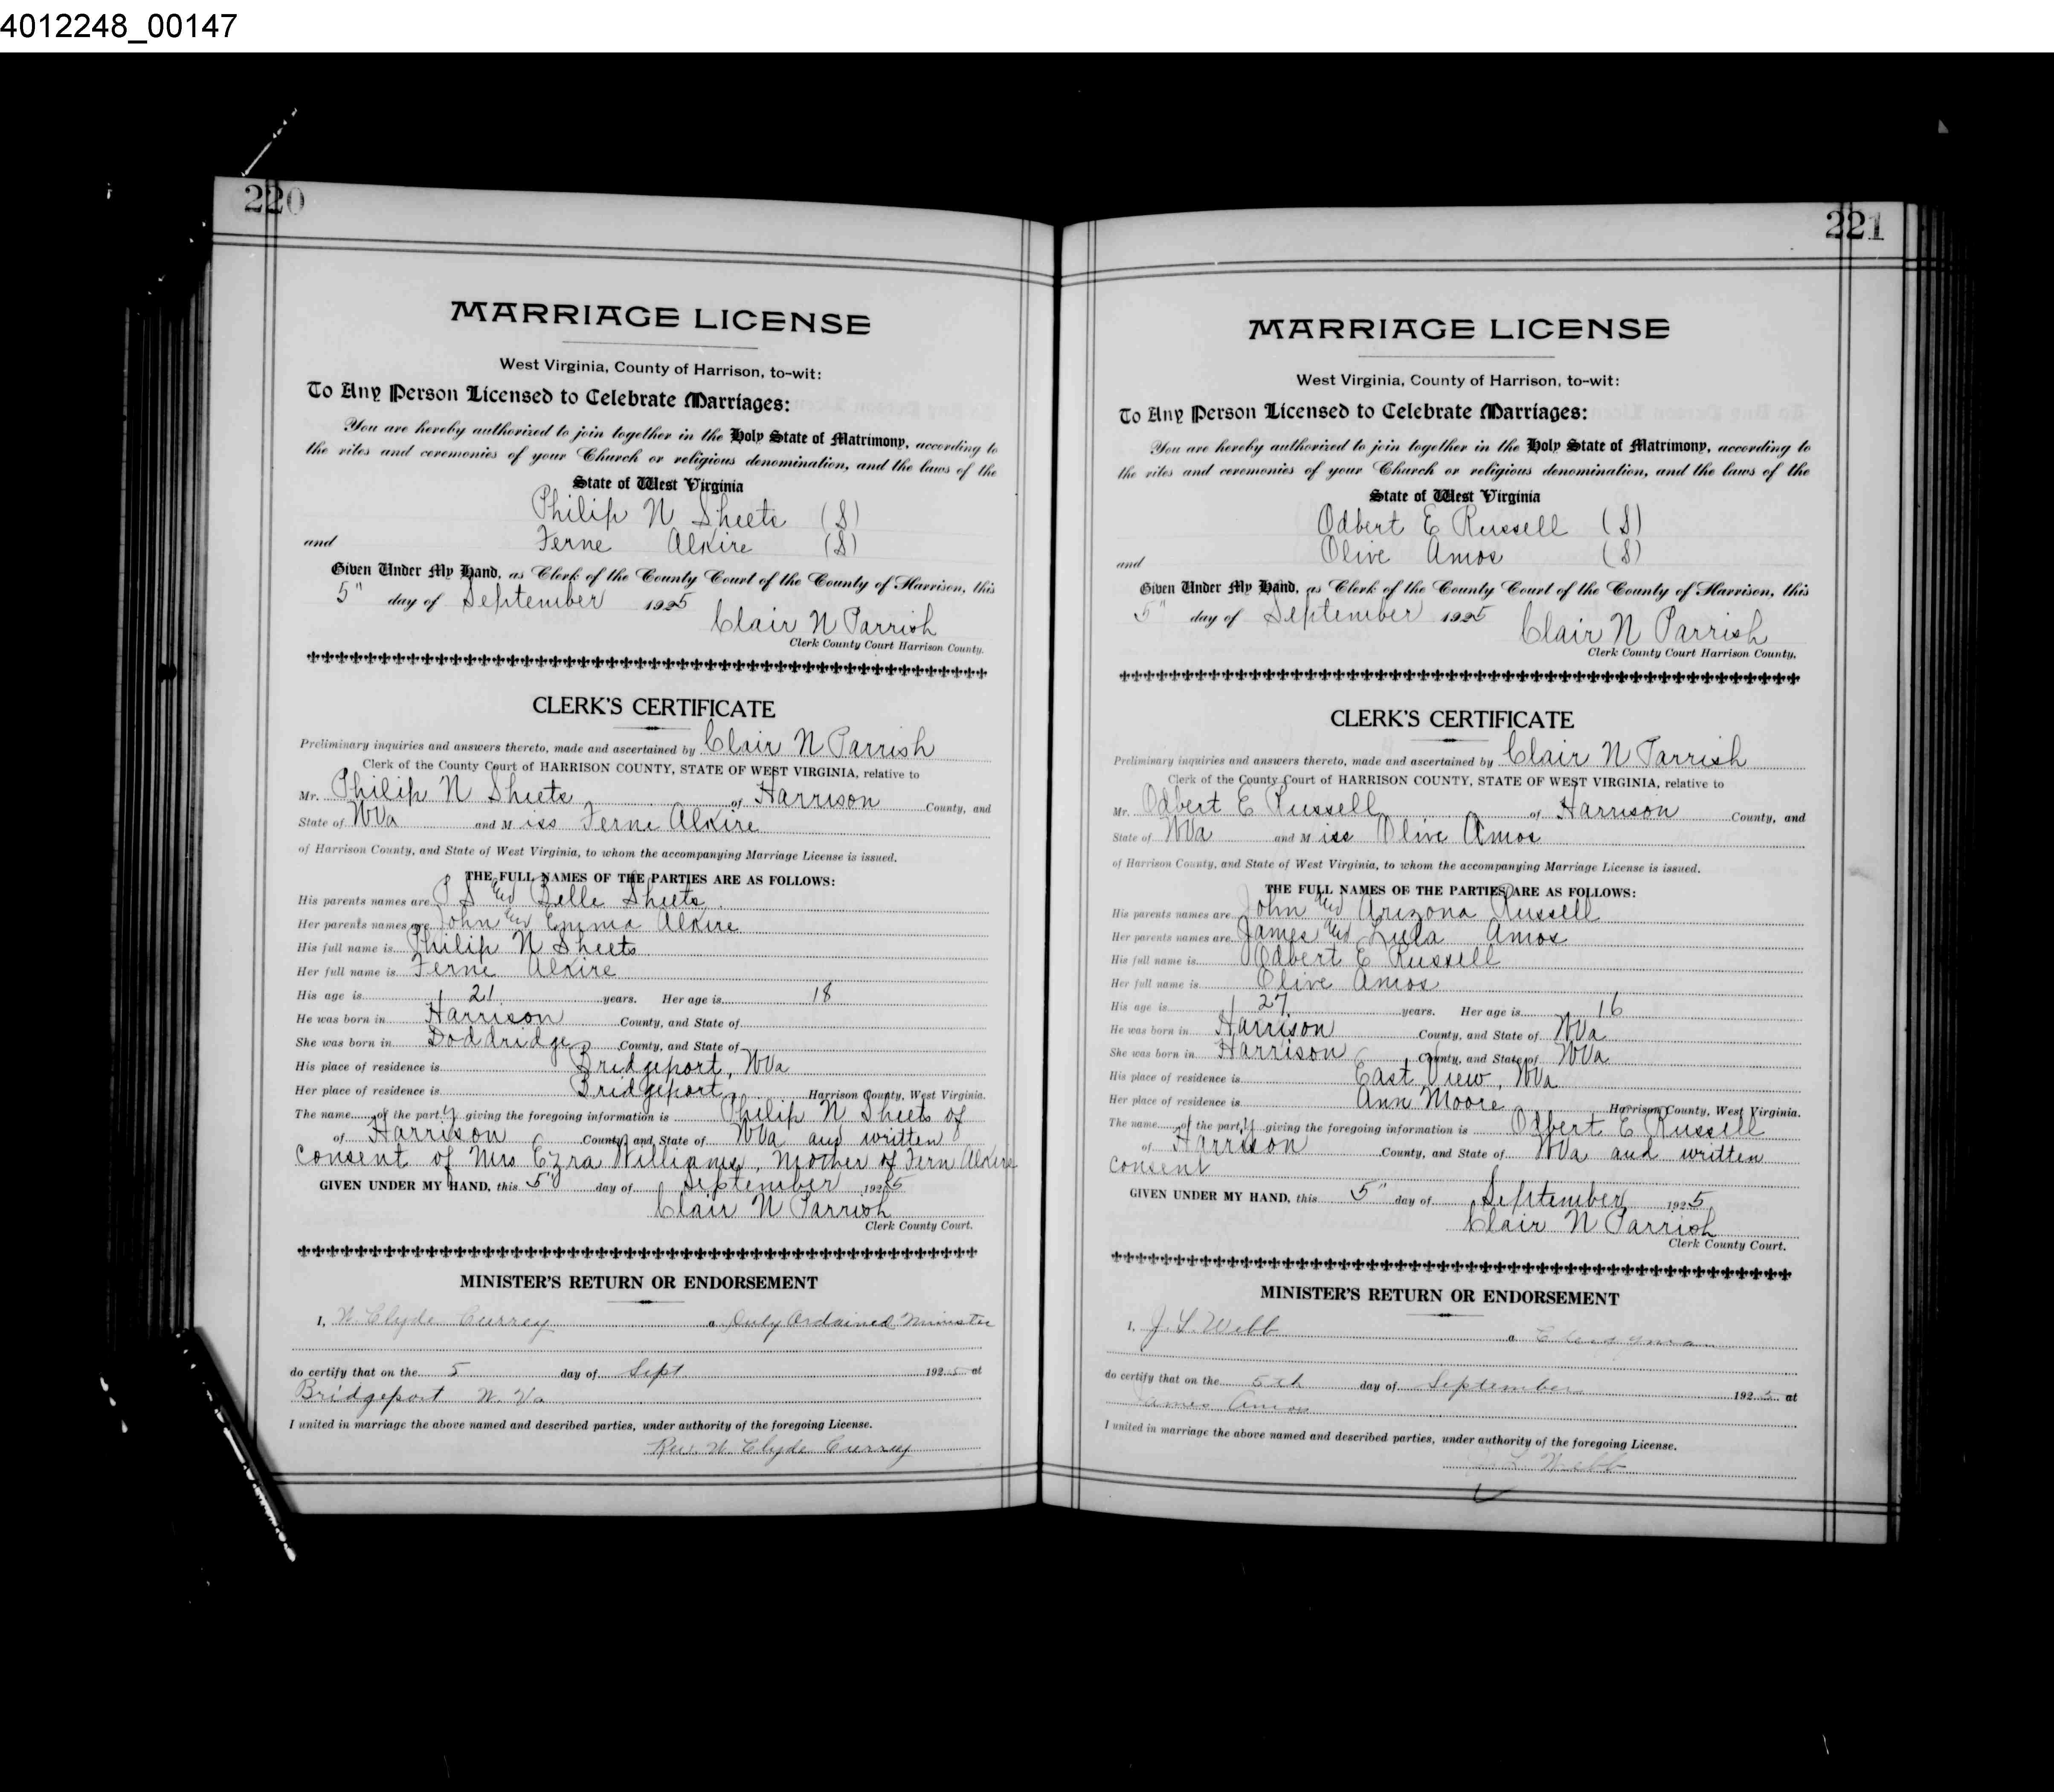 4012248_00147
220
MARRIAGE LICENSE
West Virginia, County of Harrison, to-wit:
To Any Person Licensed to Celebrate Marriages:
You are hereby authorized to join together in the Holy State of Matrimony, according to
the rites and ceremonies of your Church or religious denomination, and the laws of the
State of West Virginia
Philip N Sheets (S)
and Ferne Alkire (S)
Given Under My Hand, as Clerk of the County Court of the County of Harrison, this
5" day of September 1925
Clair N Parrish
Clerk County Court Harrison County.
CLERK'S CERTIFICATE
Preliminary inquiries and answers thereto, made and ascertained by Clair N Parrish
Clerk of the County Court of HARRISON COUNTY, STATE OF WEST VIRGINIA, relative to
Mr. Philip N Sheets of Harrison County, and
State of WVa and Miss Ferne Alkire
of Harrison County, and State of West Virginia, to whom the accompanying Marriage License is issued.
THE FULL NAMES OF THE PARTIES ARE AS FOLLOWS:
His parents names are S and Belle Sheets
Her parents names are John and Emma Alkire
His full name is Philip N Sheets
Her full name is Ferne Alkire
His age is 21 years. Her age is 18
He was born in Harrison County, and State of
She was born in Doddridge County, and State of
His place of residence is Bridgeport, WVa
Her place of residence is Bridgeport, Harrison County, West Virginia.
The name of the party giving the foregoing information is Philip N Sheets of
of Harrison County and State of WVa and written
consent of Mrs Ezra Williams, Mother of Fern Alkire
GIVEN UNDER MY HAND, this 5" day of September 1925
Clair N Parrish
Clerk County Court.
MINISTER'S RETURN OR ENDORSEMENT
I, W. Clyde Currey a Duly Ordained Minister
do certify that on the 5 day of Sept 1925 at
Bridgeport W. Va
I united in marriage the above named and described parties, under authority of the foregoing License.
Rev. W. Clyde Currey
221
MARRIAGE LICENSE
West Virginia, County of Harrison, to-wit:
To Any Person Licensed to Celebrate Marriages:
You are hereby authorized to join together in the Holy State of Matrimony, according to
the rites and ceremonies of your Church or religious denomination, and the laws of the
State of West Virginia
Odbert E Russell (S)
and Olive Amos (S)
Given Under My Hand, as Clerk of the County Court of the County of Harrison, this
5" day of September 1925
Clair N Parrish
Clerk County Court Harrison County.
CLERK'S CERTIFICATE
Preliminary inquiries and answers thereto, made and ascertained by Clair N Parrish
Clerk of the County Court of HARRISON COUNTY, STATE OF WEST VIRGINIA, relative to
Mr. Odbert E Russell of Harrison County, and
State of WVa and Miss Olive Amos
of Harrison County, and State of West Virginia, to whom the accompanying Marriage License is issued.
THE FULL NAMES OF THE PARTIES ARE AS FOLLOWS:
His parents names are John and Arizona Russell
Her parents names are James and Lula Amos
His full name is Odbert E Russell
Her full name is Olive Amos
His age is 27 years. Her age is 16
He was born in Harrison County, and State of WVa
She was born in Harrison County, and State of WVa
His place of residence is East View, WVa
Her place of residence is Ann Moore Harrison County, West Virginia.
The name of the party giving the foregoing information is Odbert E Russell
of Harrison County, and State of WVa and written
consent
GIVEN UNDER MY HAND, this 5" day of September 1925
Clair N Parrish
Clerk County Court.
MINISTER'S RETURN OR ENDORSEMENT
I, J. L. Webb a Clergyman
do certify that on the 5th day of September 1925 at
James Amos
I united in marriage the above named and described parties, under authority of the foregoing License.
L Webb